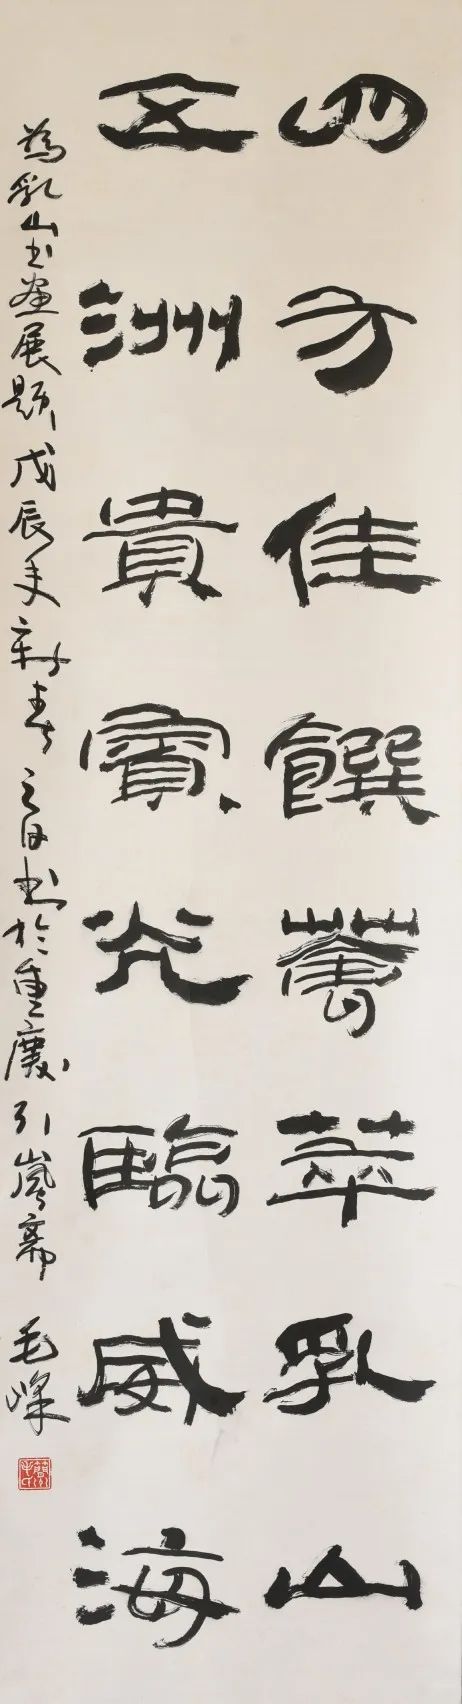 四方佳饌薈萃乳山
五洲貴賓光臨威海
為乳山书畫展題戊辰年新春之日书於重慶引嵐齋 毛峰